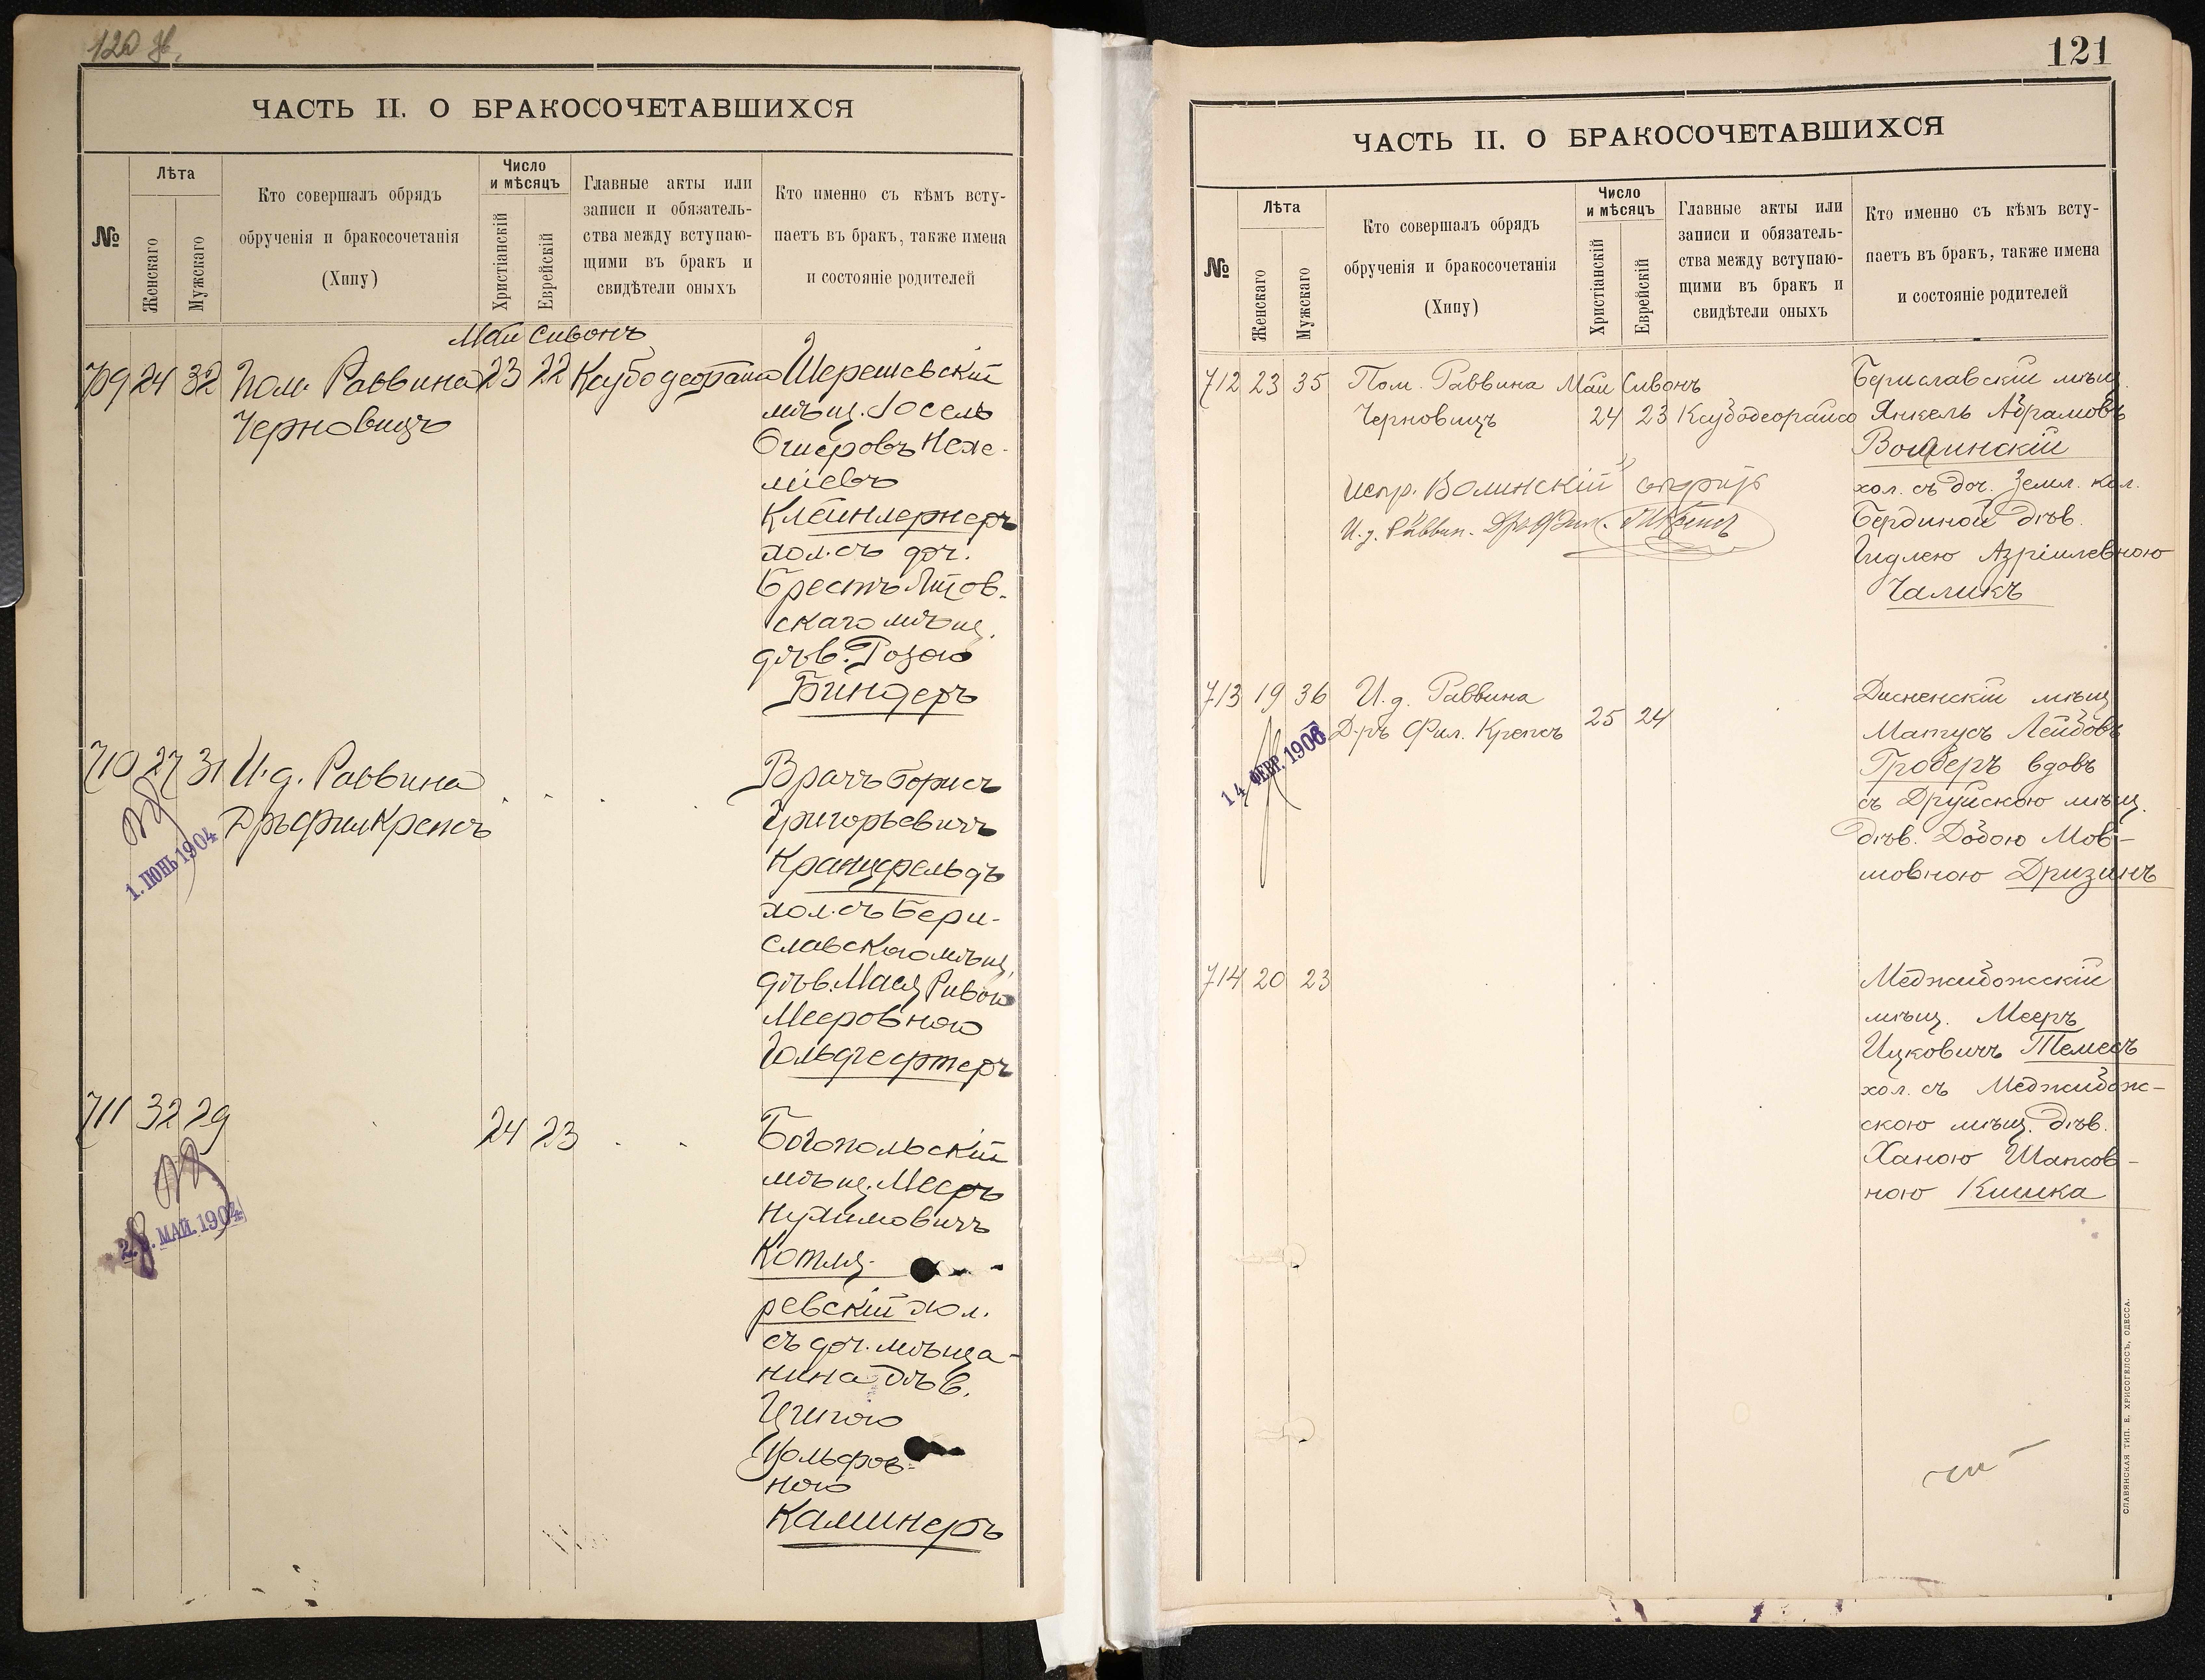 120 об.
ЧАСТЬ II. О БРАКОСОЧЕТАВШИХСЯ
№
Лѣта
Женскаго
Мужскаго
Кто совершалъ обрядъ
обрученія и бракосочетанія
(Хипу)
Число
и мѣсяцъ
Христіанскій
Еврейскій
Главные акты или
записи и обязатель-
ства между вступаю-
щими въ бракъ и
свидѣтели оныхъ
Кто именно съ кѣмъ всту-
паетъ въ бракъ, также имена
и состояніе родителей
Маи Сивонъ
709 24 32 Пом. Раввина 23 22 Каубодеорайсо Шерешевскій
Черновицъ
мѣщ. Іосель
Ошеровъ Нехе-
міевъ
Клейнлернеръ
хол. съ доч.
Брестъ Литов.
скаго мѣщ.
дѣв. Розою
Биндеръ
710 27 31 И.д. Раввина
Дръ Фил Крепсъ
1. ІЮНЬ 1904
Врачъ Борисъ
Григорьевичъ
Кранцфельдъ
хол. съ Бери-
славскою мѣщ.
дѣв. Мася Ривою
Мееровною
Гольдгефтеръ
711 32 29 24 23
28. МАЙ. 1904
Богопольскій
мѣщ. Мееръ
Нухимовичъ
Котля-
ревскій хол.
съ доч. мѣща-
нина дѣв.
Ципою
Вольфов-
ною
Каминеръ
121
ЧАСТЬ II. О БРАКОСОЧЕТАВШИХСЯ
№
Лѣта
Женскаго
Мужскаго
Кто совершалъ обрядъ
обрученія и бракосочетанія
(Хипу)
Число
и мѣсяцъ
Христіанскій
Еврейскій
Главные акты или
записи и обязатель-
ства между вступаю-
щими въ бракъ и
свидѣтели оныхъ
Кто именно съ кѣмъ всту-
паетъ въ бракъ, также имена
и состояніе родителей
712 23 35 Пом. Раввина Маи Сивонъ
Черновицъ 24 23 Каубодеорайсо
Испр. Волинскій
И.д. Раввин. Дръ Фил. Крепсъ
Бериславскій мѣщ.
Янкель Абрамовъ
Волинскій
хол. съ доч. Земл. кол.
Бердиной дѣв.
Гидлею Азріилевною
Чаликъ
713 19 36 И.д. Раввина
Д-ръ Фил. Крепсъ 25 24
14 ФЕВР. 1906
Дисненскій мѣщ
Матусъ Лейбовъ
Гроберъ вдовъ
съ Друйскою мѣщ.
дѣв. Добою Мов-
шовною Дризинъ
714 20 23
Меджибожскій
мѣщ. Мееръ
Ицковичъ Темесъ
хол. съ Меджибож-
скою мѣщ. дѣв.
Ханою Шапсов-
ною Кишка
СЛАВЯНСКАЯ ТИП. Е. ХРИСОГЕЛОСЪ, ОДЕССА.